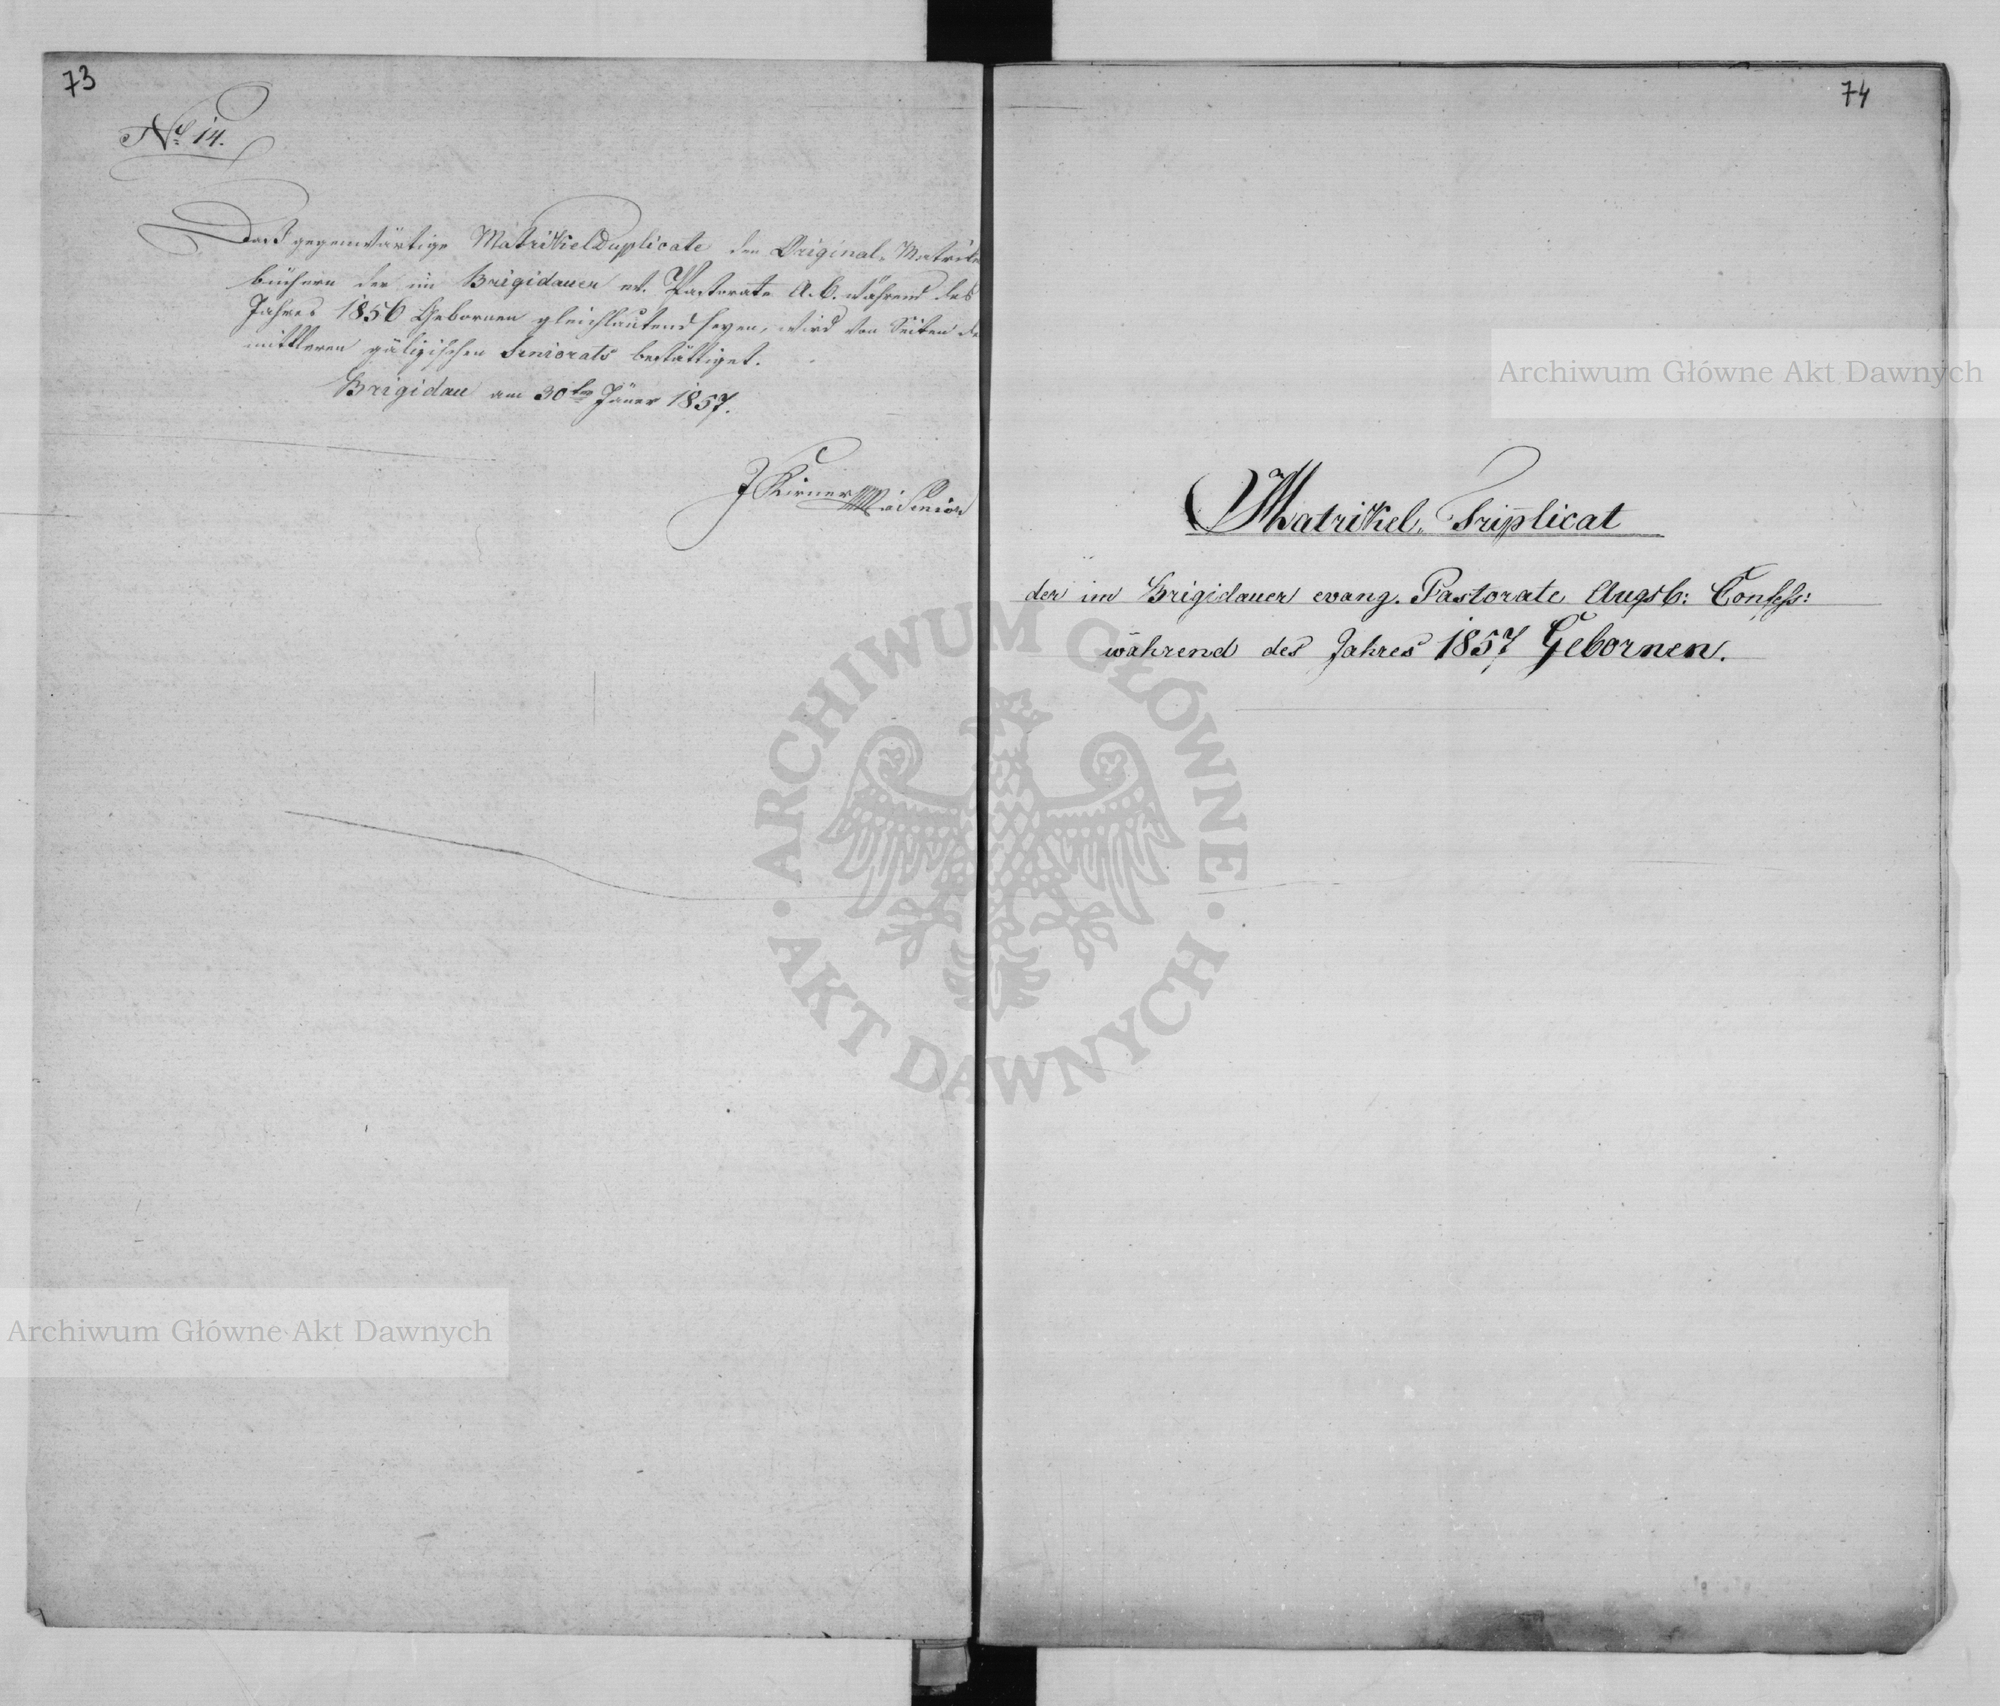 73
No 14.
Daß gegenwärtige MatrikelDuplicate den Original-Matrikel
büchern der im Brigidauer ev. Pastorate A. C. während des
Jahres 1856 Gebornen gleichlautend seyen, wird von Seiten des
mittleren galizischen Seniorats bestättiget.
Brigidau am 30ten Jäner 1857.
J Kirner
Senior
74
Matrikel-Triplicat
der im Brigidauer evang. Pastorate Augsb: Confess:
während des Jahres 1857 Gebornen.
Archiwum Główne Akt Dawnych
ARCHIWUM GŁÓWNE AKT DAWNYCH
Archiwum Główne Akt Dawnych